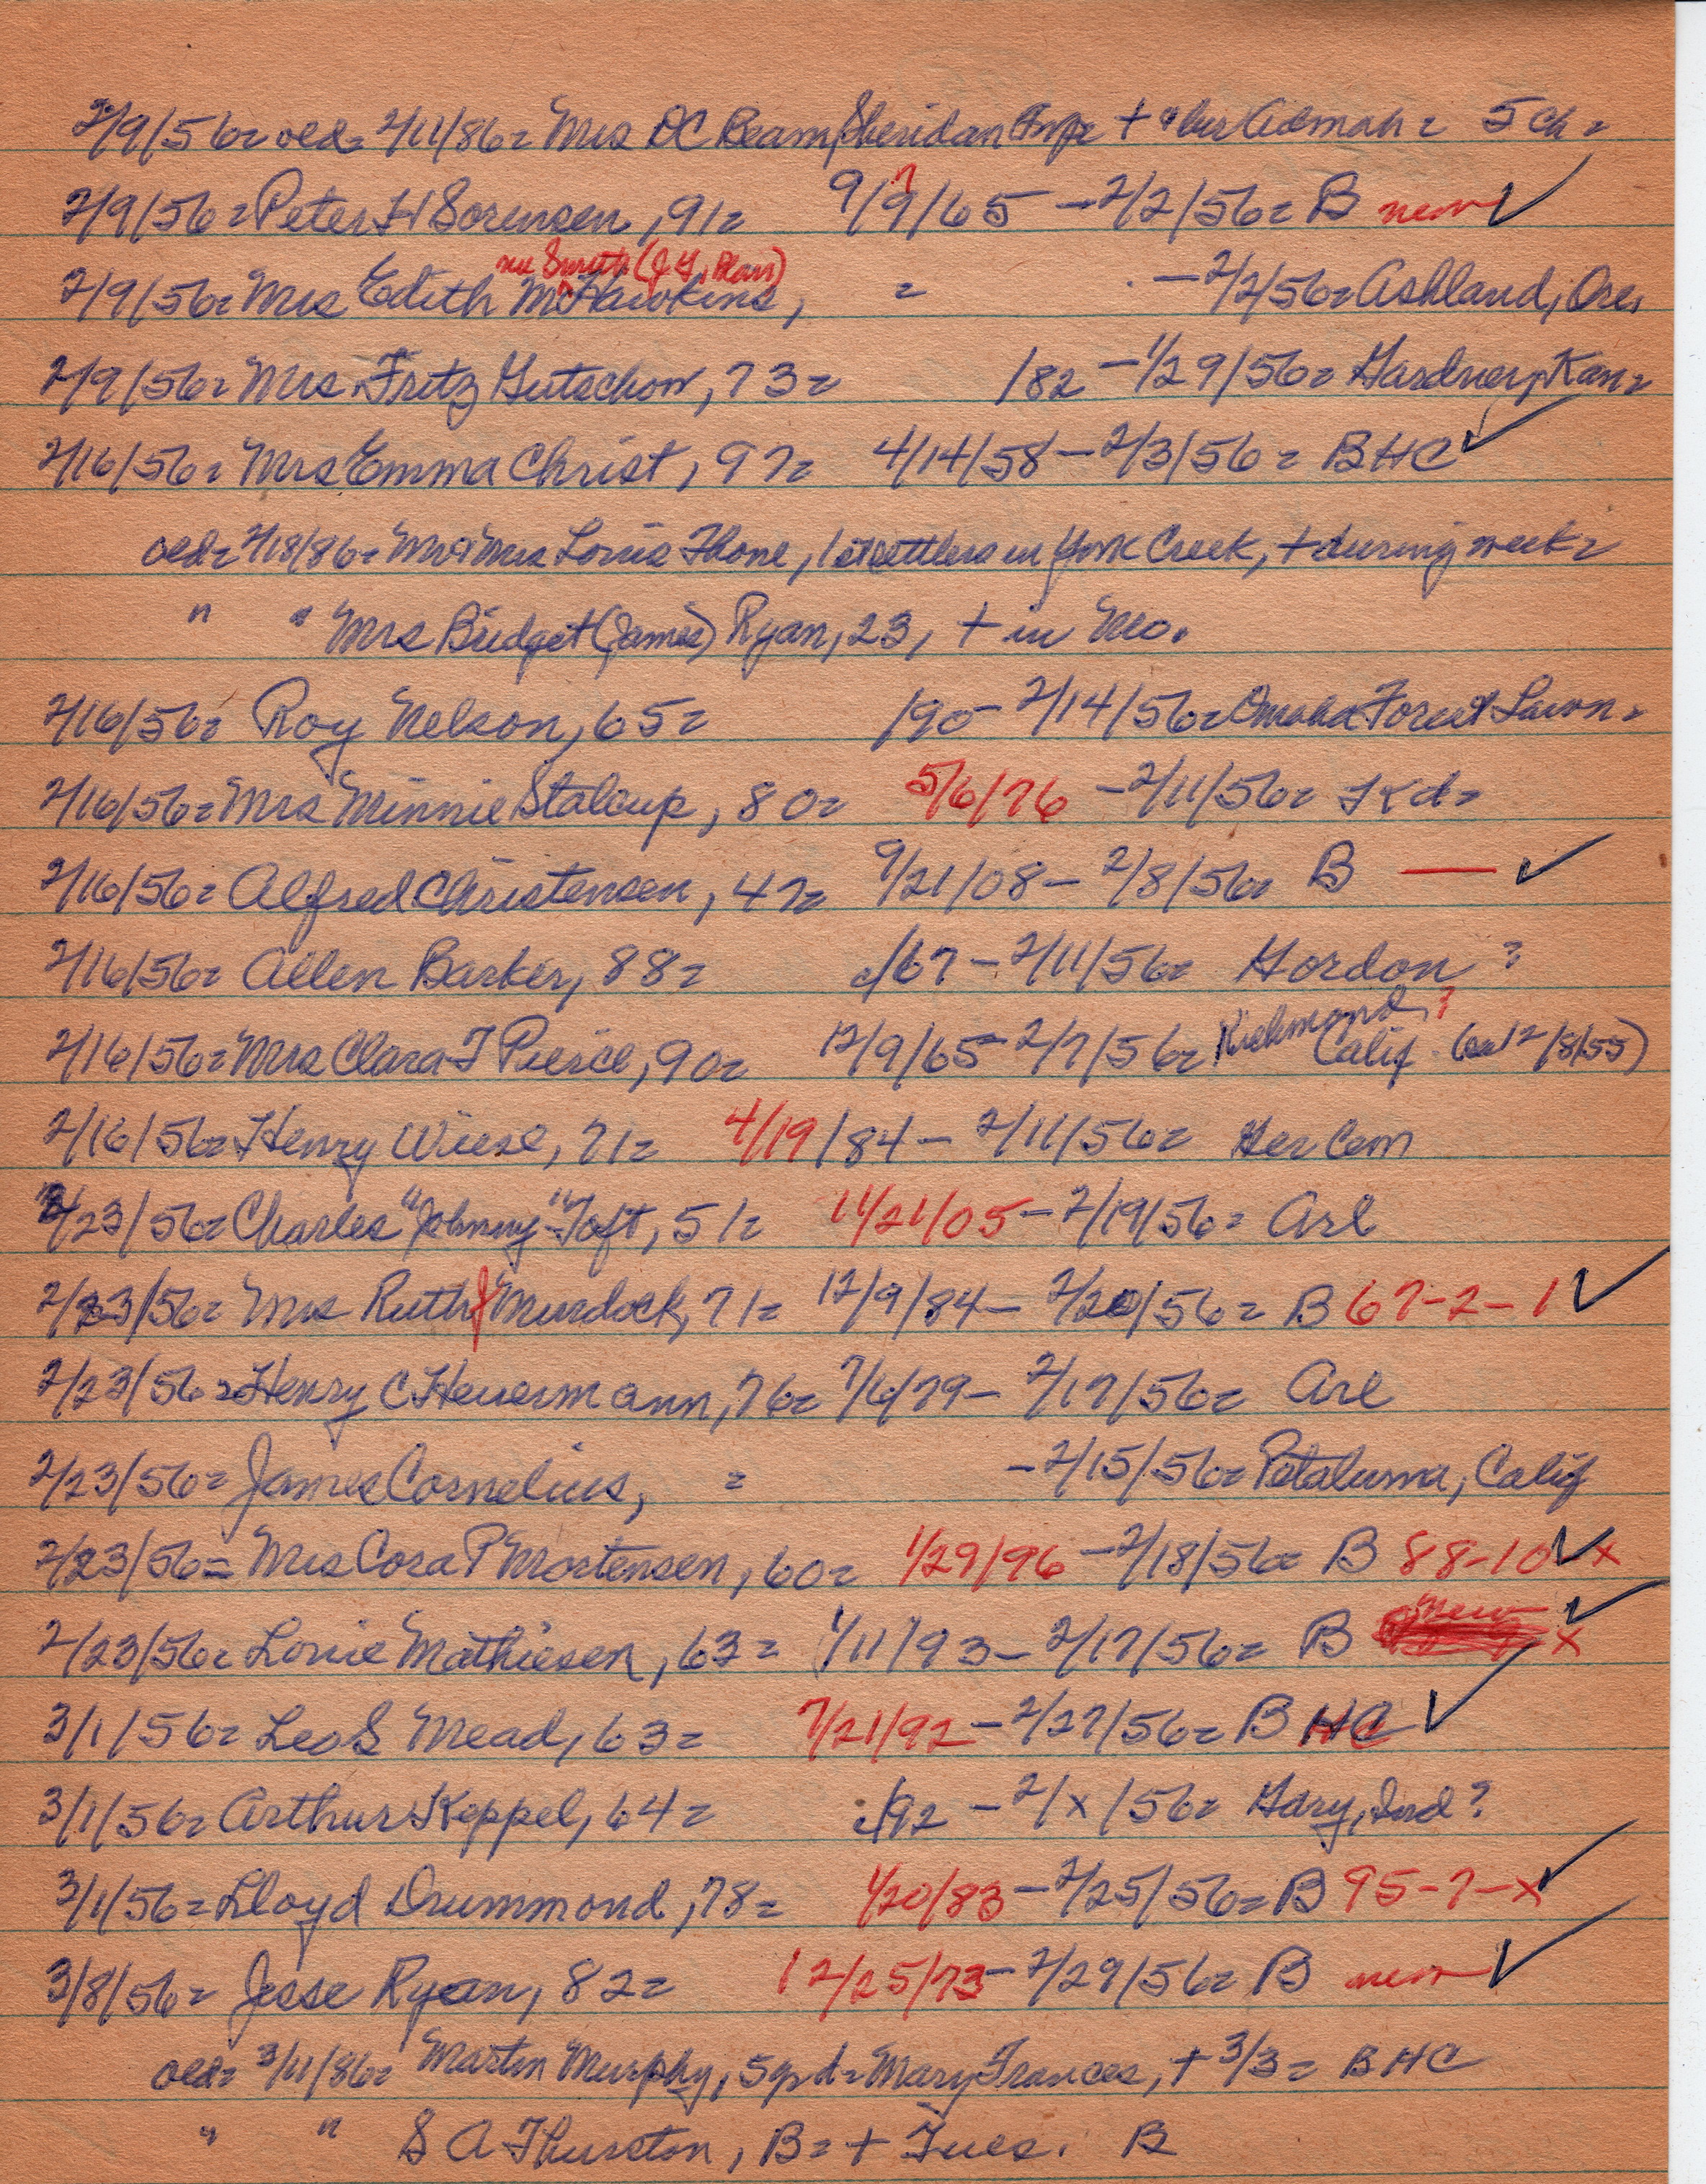 2/9/56= old= 2/11/86= Mrs DC Beam, Sheridan Twp= + Admah= 5 ch=
2/9/56= Peter H Sorensen, 91= 9/9?/65 - 2/2/56= B new ✓
nee Smith (J H, Blair)
2/9/56= Mrs Edith M Hawkins, = - 2/2/56= Ashland, Ore,
2/9/56= Mrs Fritz Gutschow, 73= /82 - 1/29/56= Gardner, Kan=
2/16/56= Mrs Emma Christ, 97= 4/14/58 - 2/3/56= BHC ✓
old= 2/18/86= Mr & Mrs Louis Thone, 1st settlers in York Creek, + during week=
" " Mrs Bridget (James) Ryan, 23, + in Mo.
2/16/56= Roy Nelson, 65= /90 - 2/14/56= Omaha Forest Lawn=
2/16/56= Mrs Minnie Stalcup, 80= 5/6/76 - 2/11/56= Kd=
2/16/56= Alfred Christensen, 47= 9/21/08 - 2/8/56= B — ✓
2/16/56= Allen Barker, 88= c/67 - 2/11/56= Gordon ?
2/16/56= Mrs Clara T Pierce, 90= 12/9/65 - 2/7/56= Richmond, ? Calif. 12/8/55)
2/16/56= Henry Wiese, 71= 4/19/84 - 2/11/56= Her Cem
2/23/56= Charles "Johnny" Toft, 51= 11/21/05 - 2/19/56= Arl
2/23/56= Mrs Ruth J Murdock, 71= 12/9/84 - 2/20/56= B 67-2-1 ✓
2/23/56= Henry C Heuermann, 76= 7/6/79 - 2/17/56= Arl
2/23/56= James Cornelius, = - 2/15/56= Petaluma, Calif
2/23/56= Mrs Cora P Mortensen, 60= 1/29/96 - 2/18/56= B 88-10 ✓ x
2/23/56= Louie Mathiesen, 63= 1/11/93 - 2/17/56= B new ✓ x
3/1/56= Leo S Mead, 63= 7/21/92 - 2/27/56= B HC ✓
3/1/56= Arthur Keppel, 64= c/92 - 2/x/56= Gary, Ind ?
3/1/56= Lloyd Drummond, 78= 1/20/83 - 2/25/56= B 95-7-x ✓
3/8/56= Jesse Ryan, 82= 12/25/73 - 2/29/56= B new ✓
old= 3/11/86= Martin Murphy, 5 yr d= Mary Frances, + 3/3= BHC
" " S A Thurston, B= + Tues. B